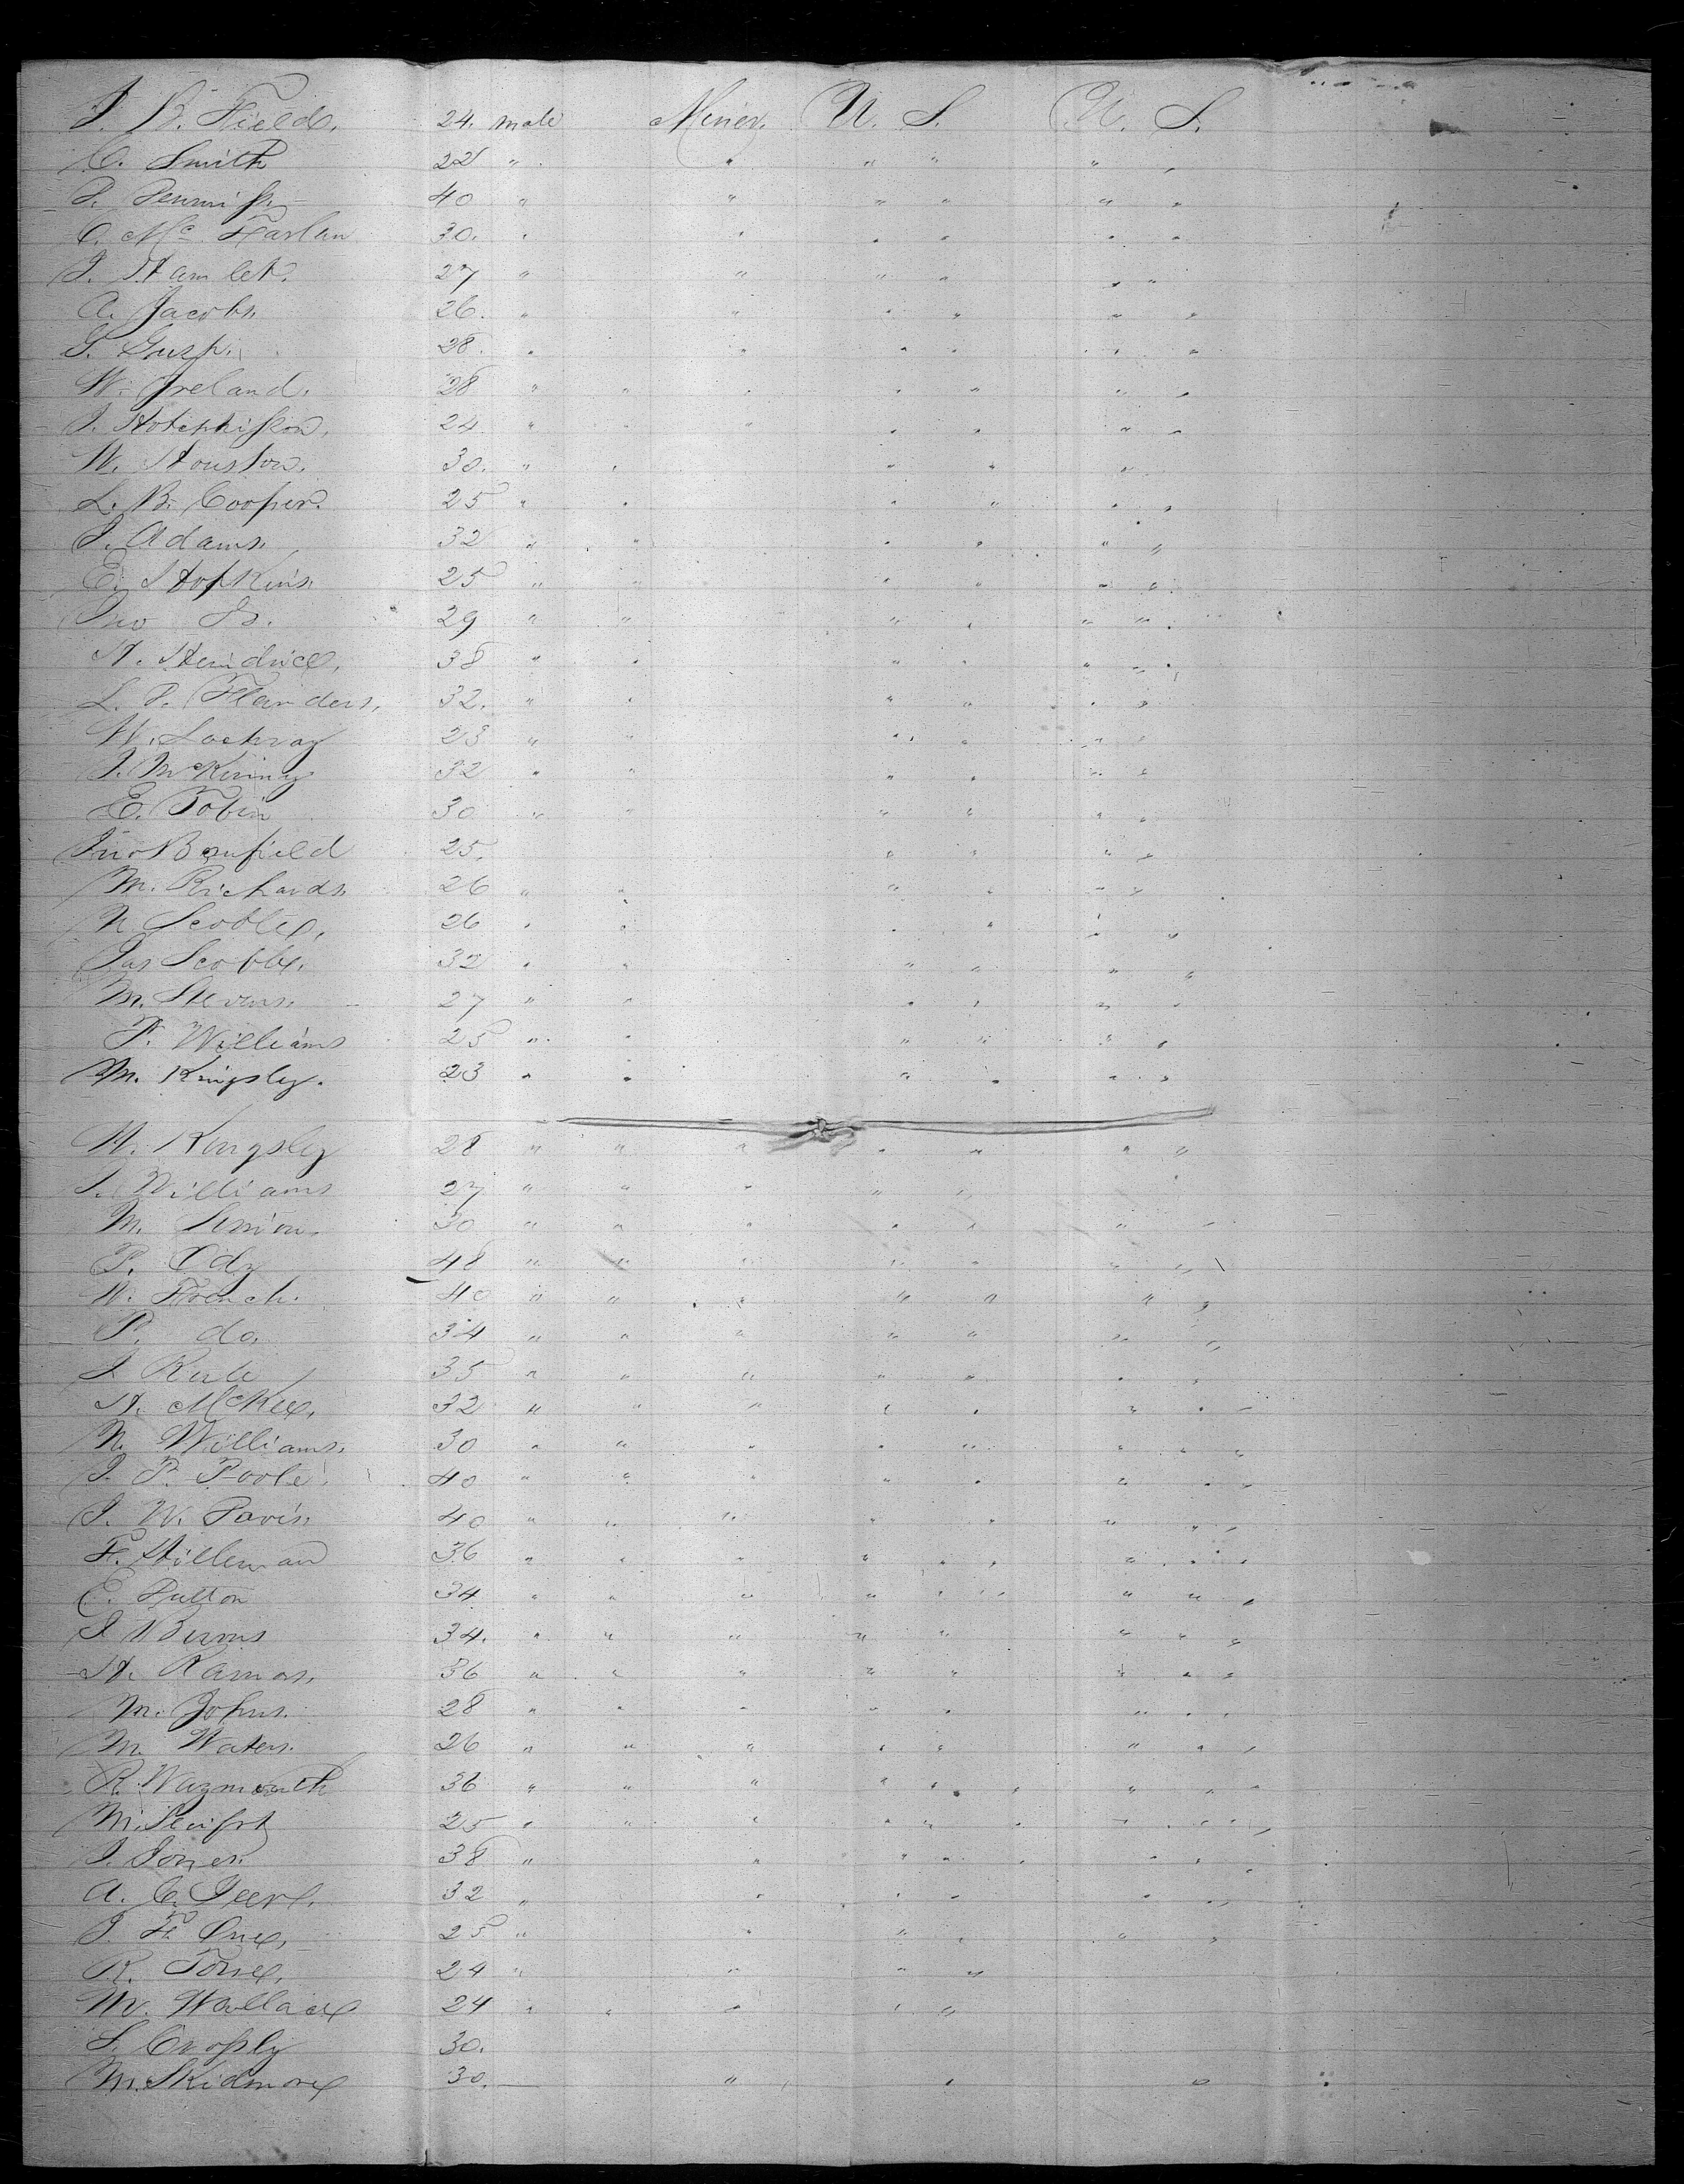 J. B. Field. 24. male Miner. U. S. U. S.
C. Smith 22 " " " " " "
P. 40 " " " " " "
C. Mc Farlan 30. " " " " " "
J. Hamlet. 27 " " " " " "
A. Jacobs. 26. " " " " " "
G. 28. " " " " " "
W. Ireland. 28 " " " " " " "
J. 24 " " " " " " "
W. Houston. 30. " " " " "
L. B. Cooper. 25 " " " " " "
J. Adams. 32 " " " " " "
E. Hopkins. 25 " " " " " "
Jno Do. 29 " " " " " "
H. Hendrice, 38 " " " " " "
L. P. Flanders, 32. " " " " " "
W. Lochray 23 " " " " " "
J. McKinny 32 " " " " " "
E. Tobin 30 " " " " " "
Jno Benfield 25. " " " "
M. Richards. 26 " " " " " "
N Scoble, 26 " " " " " "
Jas Scoble. 32 " " " " " "
M. Stevens. 27 " " " " " "
T. Williams 25 " " " " " "
M. Kingsley. 23 " " " " " "
H. Kingsley 28 " " " " " " "
J. Williams 27 " " " " "
M. Simon. 30 " " " " " " "
P. Ody 48 " " " " " " "
W. French. 40 " " " " " " "
P. do. 34 " " " " " " "
J. Rule 35 " " " " " " "
H. McKee, 32 " " " " " " " "
N. Williams. 30 " " " " " " " "
J. P. Poole. 40 " " " " " " " "
J. W. Davis. 40 " " " " " " " "
F. Hilleman 36 " " " " " " " "
E. Dutton 34 " " " " " " " "
J Burns 34. " " " " " " " "
H. Ramos. 36 " " " " " " " "
M. Johns. 28 " " " " " " " "
M. Waters. 26 " " " " " " " "
R. Waymouth 36 " " " " " " " "
M. 25 " " " " " " " "
J. Jones. 38 " " " " " " "
A. C. 32 " " " " " "
J. F. 25 " " " " " "
R. Tonel, 24 " " " "
W. Wallace 24 " " " " "
S. Crossly 30.
M. Skidmore 30. " " "